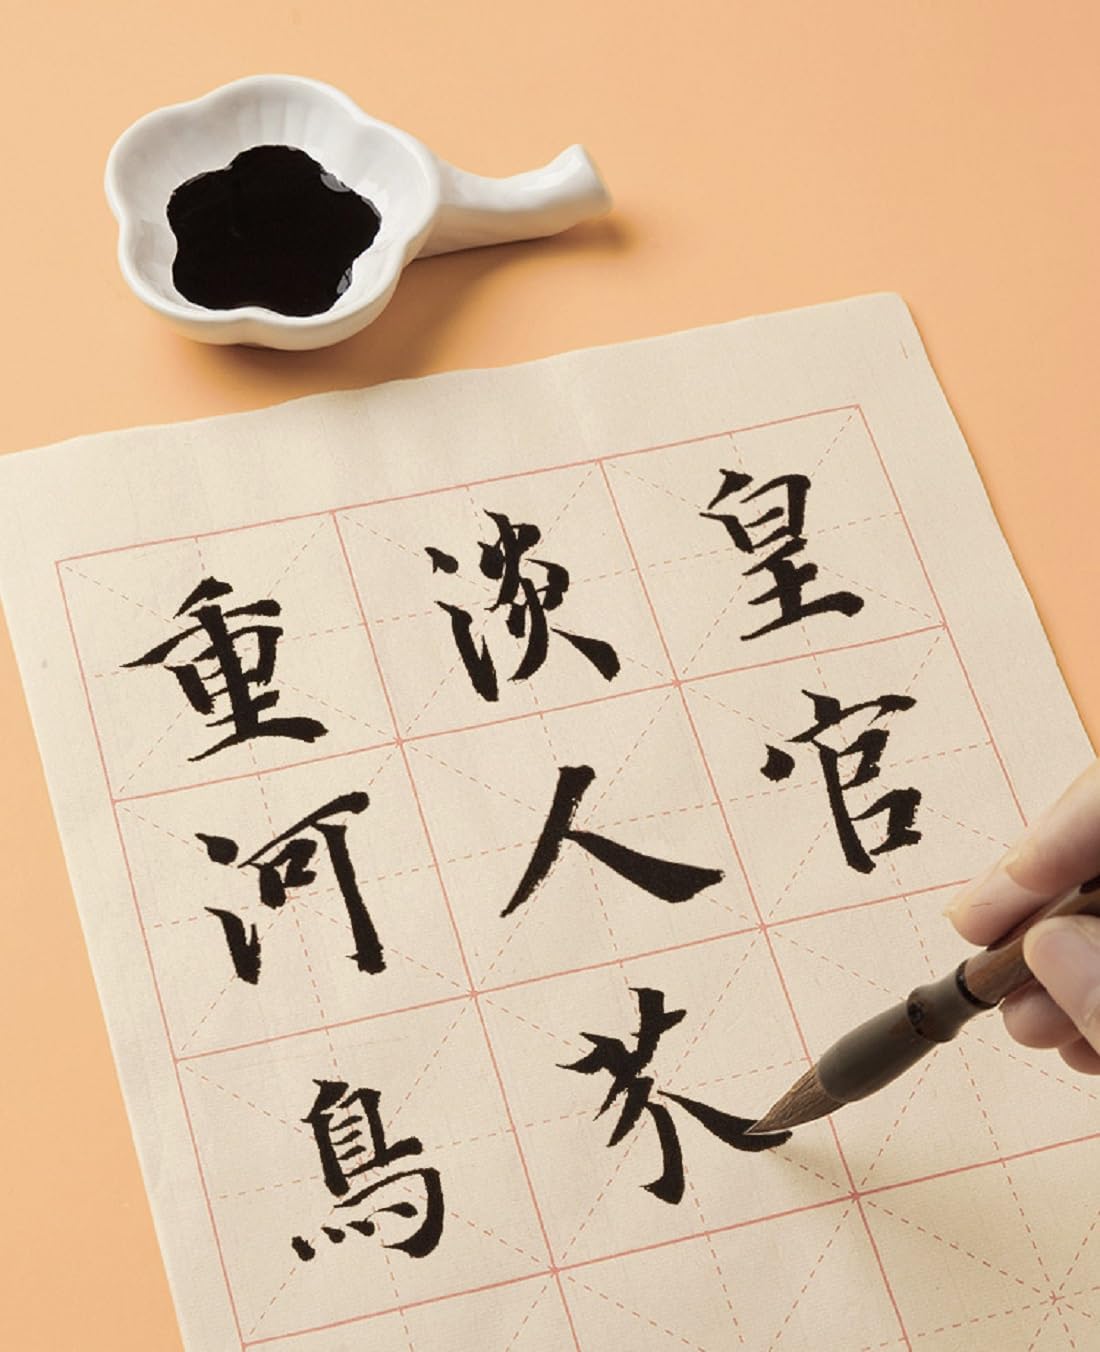 皇官
淡人芥
重河鳥